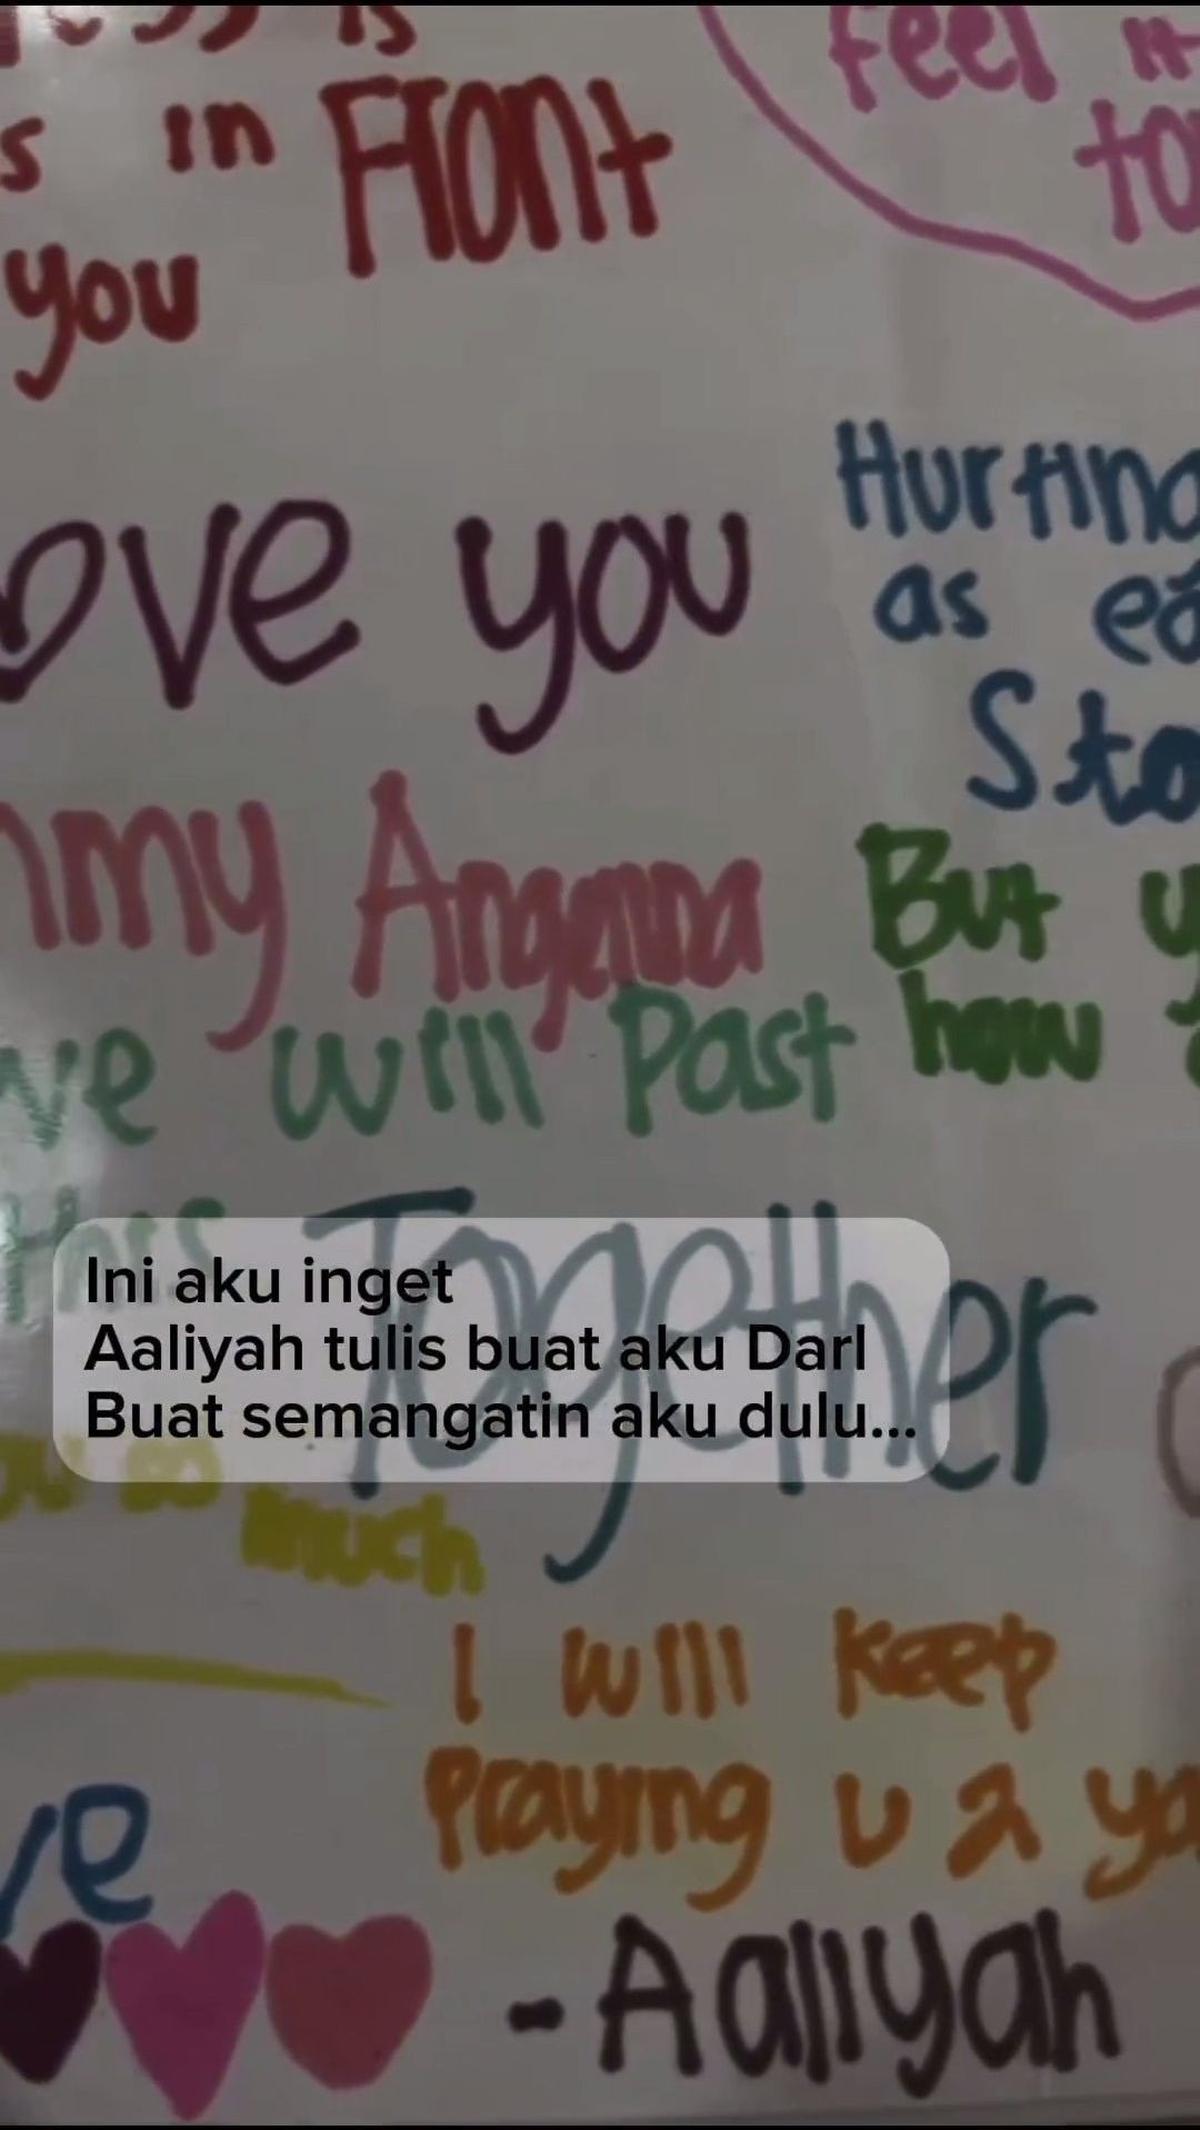 is
s in Front
you
feel it
to
ove you
Hurting
as ea
Sto
mmy Angelina
But y
how
we will Past
this Together
Ini aku inget
Aaliyah tulis buat aku Darl
Buat semangatin aku dulu...
you so
much
I will keep
Praying u 2 ya
ve
-Aaliyah